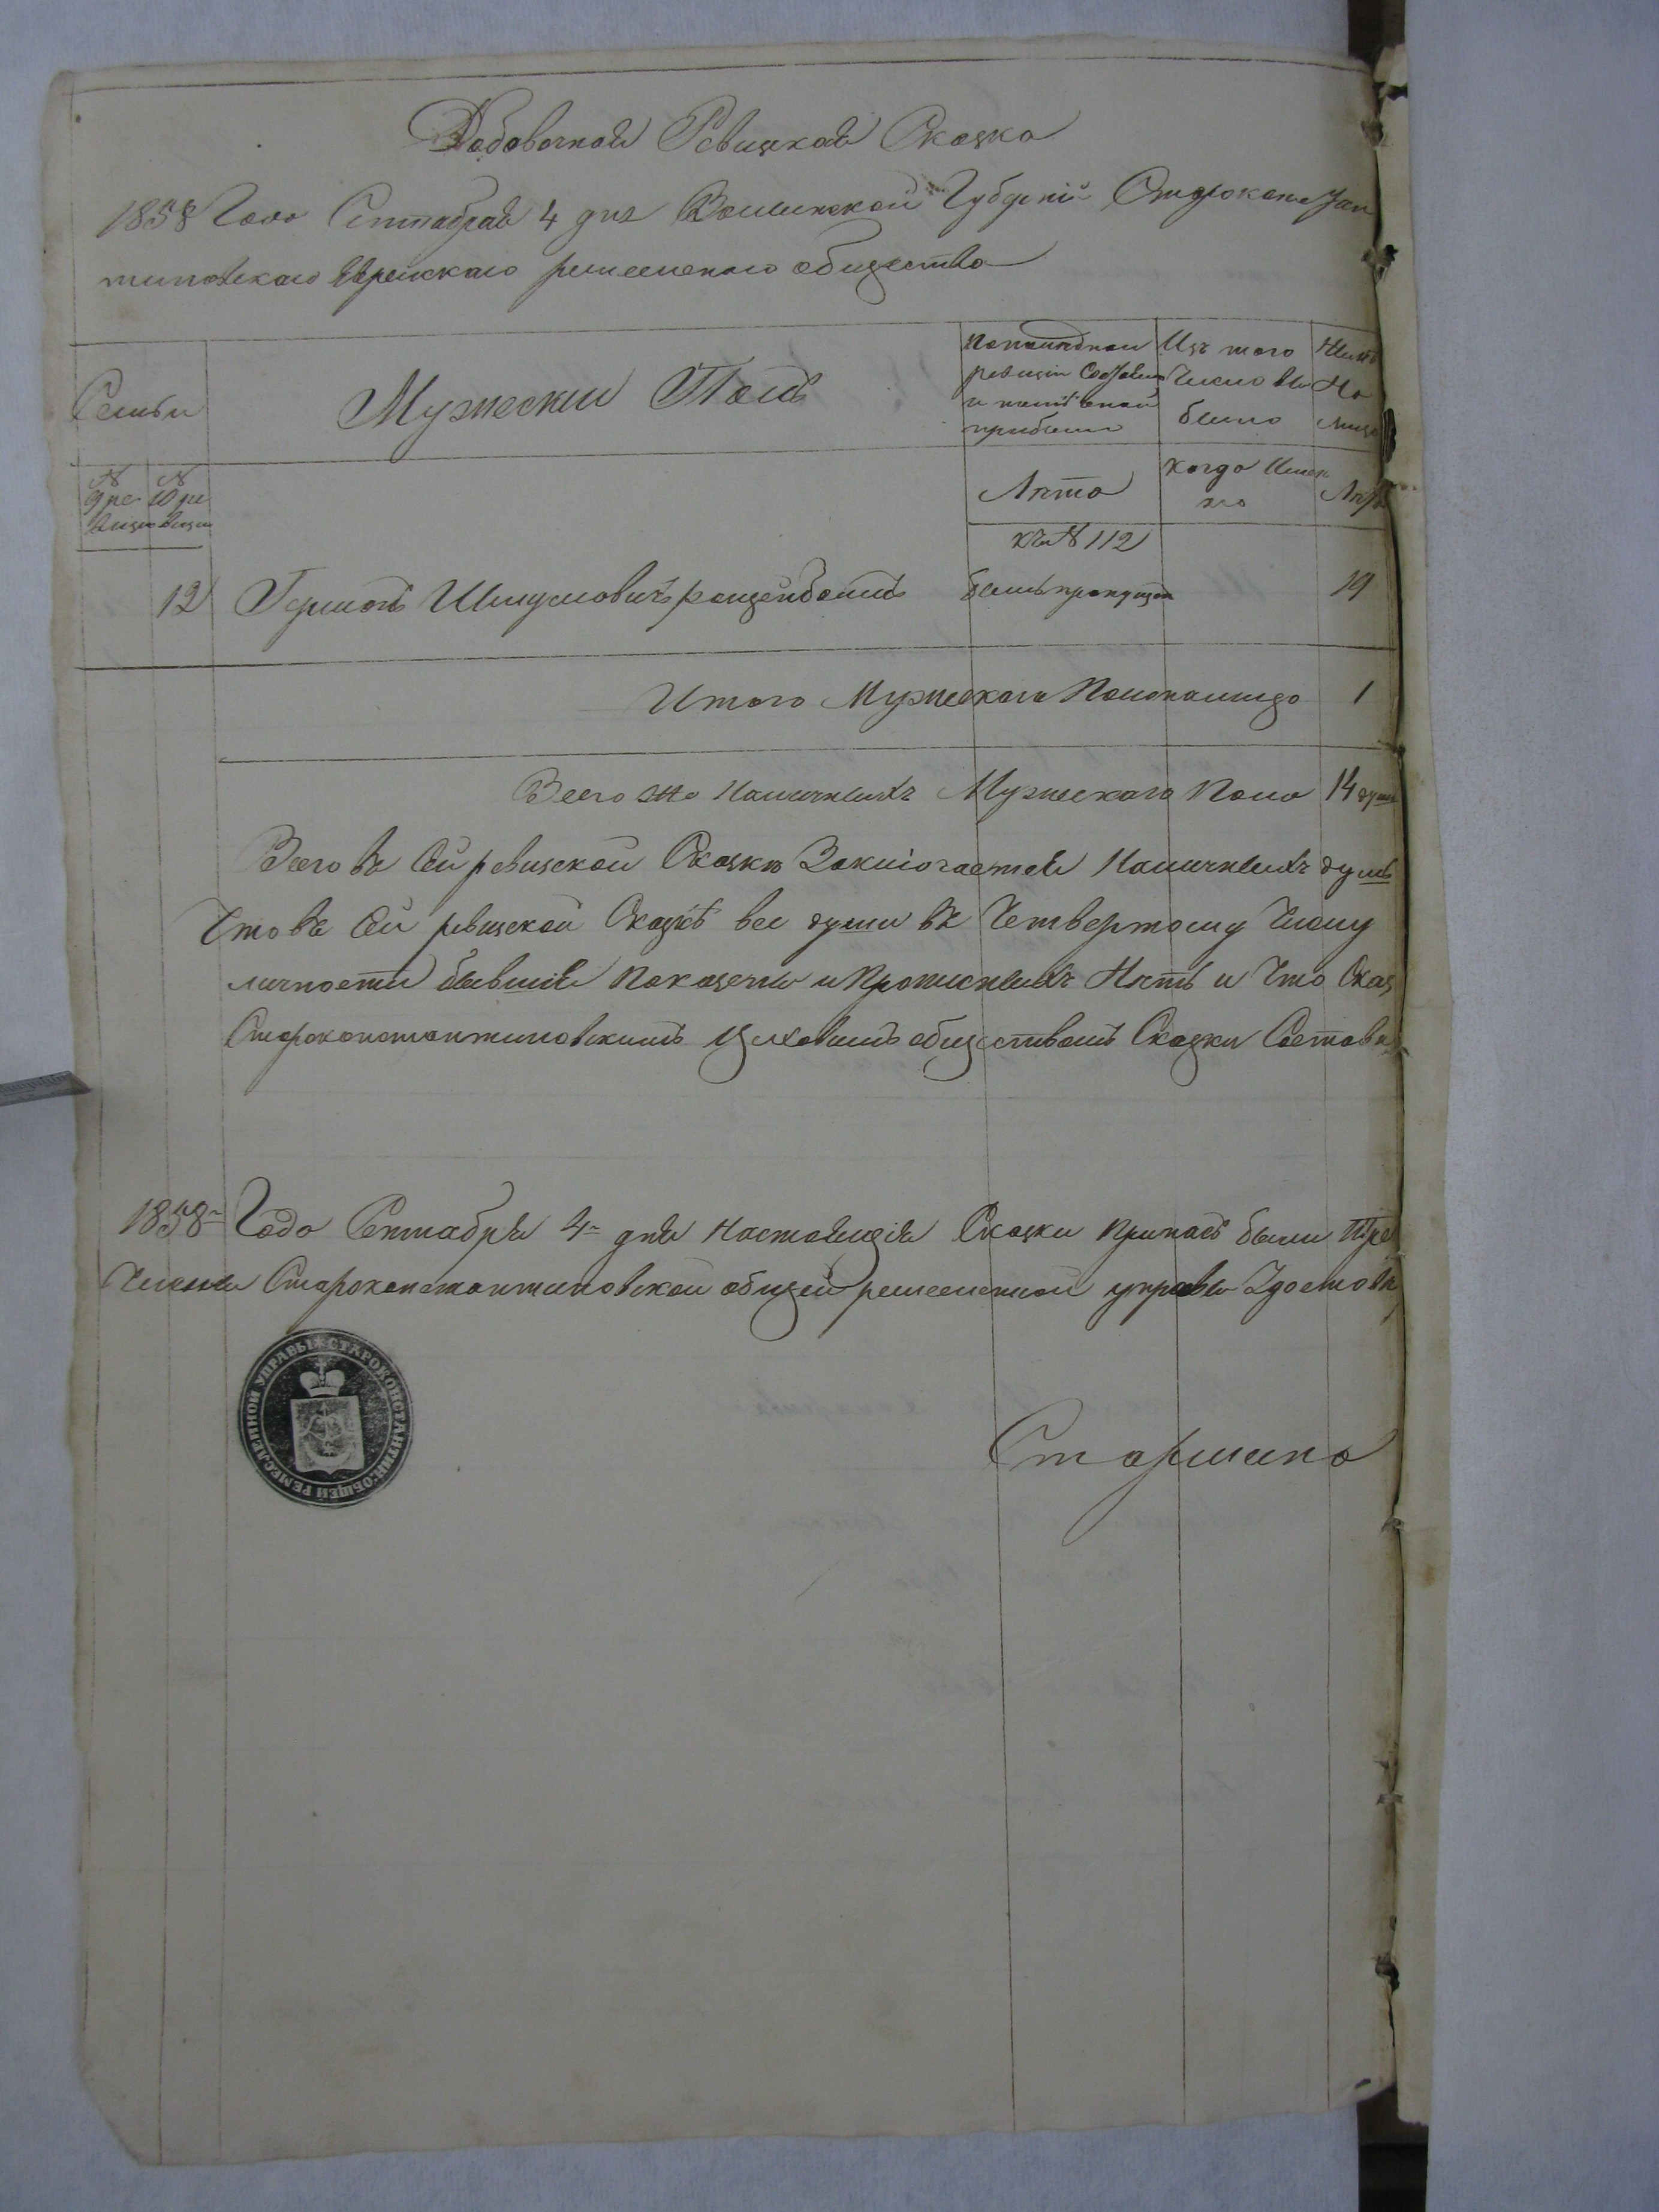 Добовочной Ревизкай Сказка
1858 Года Сентабрай 4 дня Волинской Губерніи Староконстан
тиновскаго Еврейскаго ремесленаго общества
Семьи
Мужескии Полъ
По последной ревизіи Состояли и после оной прибыли
Изъ того Числа вы было
Ныне На лицо
№ 9 ре визіи
№ 10 ре визіи
Лета
когда Имен но
Лета
къ № 112
12 Гершонъ Шмулович
былъ пропущен
19
Итого Мужескаго Пола на лицо 1
Всего же Наличныхъ Мужескаго Пола 14 душ
Всего въ Сей ревизской Сказке Заключается Наличныхъ душъ
Что въ Сей ревизской Сказке все души въ Четвертому Числу
личности бывшие показаны и Прописныхъ Нетъ и Что Сказ
Староконстантиновскимъ Цеховымъ обществомъ Сказки Состави
1858 Года Сентабря 4 дня Настоящія Сказки были
Староконстантиновской общей ремесленной управы Удостове
СТАРОКОНСТАНТИН: ОБЩЕЙ РЕМЕСЛЕННОЙ УПРАВЫ
Старшина